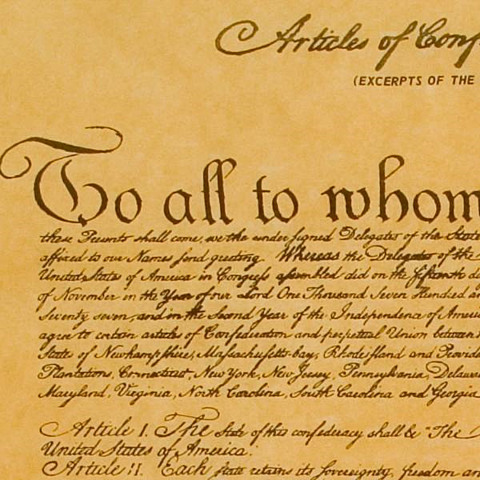 Articles of Conf
(EXCERPTS OF THE
To all to whom
these Presents shall come, we the under signed Delegates of the State
affixed to our Names send greeting Whereas the Delegates of the
United States of America in Congress assembled did on the fifteenth da
of November in the Year of our Lord One Thousand Seven Hundred an
Seventy seven, and in the Second Year of the Independence of Ameri
agree to certain articles of Confederation and perpetual Union between
State of Newhampshire, Massachusetts-bay, Rhodeisland and Provide
Plantations, Connecticut, New York, New Jersey, Pennsylvania, Delawa
Maryland, Virginia, North Carolina, South Carolina and Georgia
Article I. The State of this confederacy shall be "The
United States of America.
Article II. Each state retains its sovereignty, freedom an